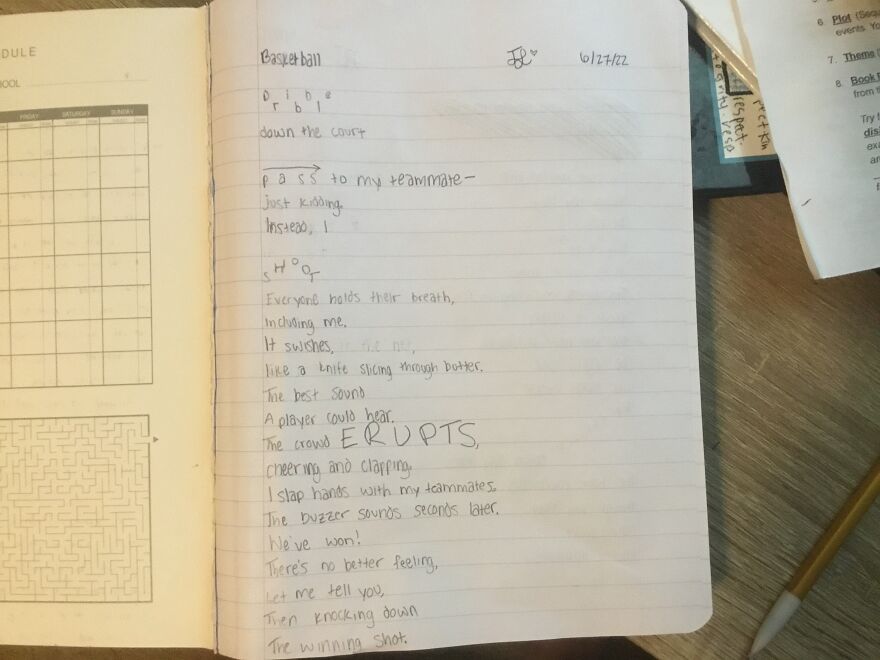 DULE
OOL
FRIDAY SATURDAY SUNDAY
Basketball 6/27/22
Dribble
down the court
pass to my teammate—
just kidding.
Instead, I
SHOOT
Everyone holds their breath,
Including me.
It swishes,
like a knife slicing through butter.
The best sound
A player could hear.
The crowd ERUPTS,
cheering and clapping.
I slap hands with my teammates.
The buzzer sounds seconds later.
We've won!
There's no better feeling,
Let me tell you,
Then knocking down
The winning shot.
respect
6. Plot (Sequ
events Yo
7. Theme (
8. Book
from th
Try t
dis
exa
an